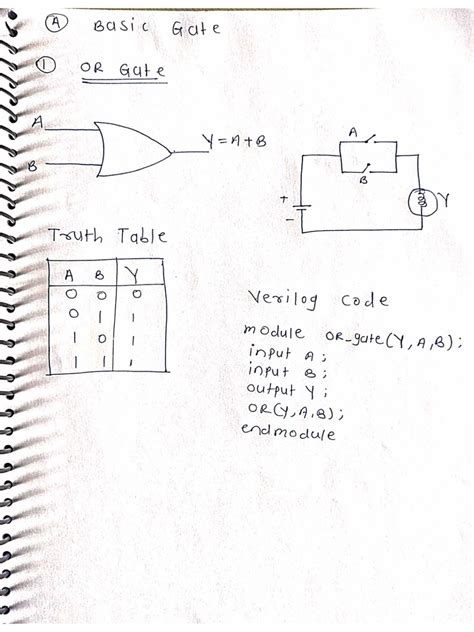 Ⓐ Basic Gate
① OR Gate
A
B
Y = A + B
A
B
+
-
Y
Truth Table
A B Y
0 0 0
0 1 1
1 0 1
1 1 1
Verilog code
module OR_gate(Y,A,B);
input A;
input B;
output Y;
OR(Y,A,B);
endmodule